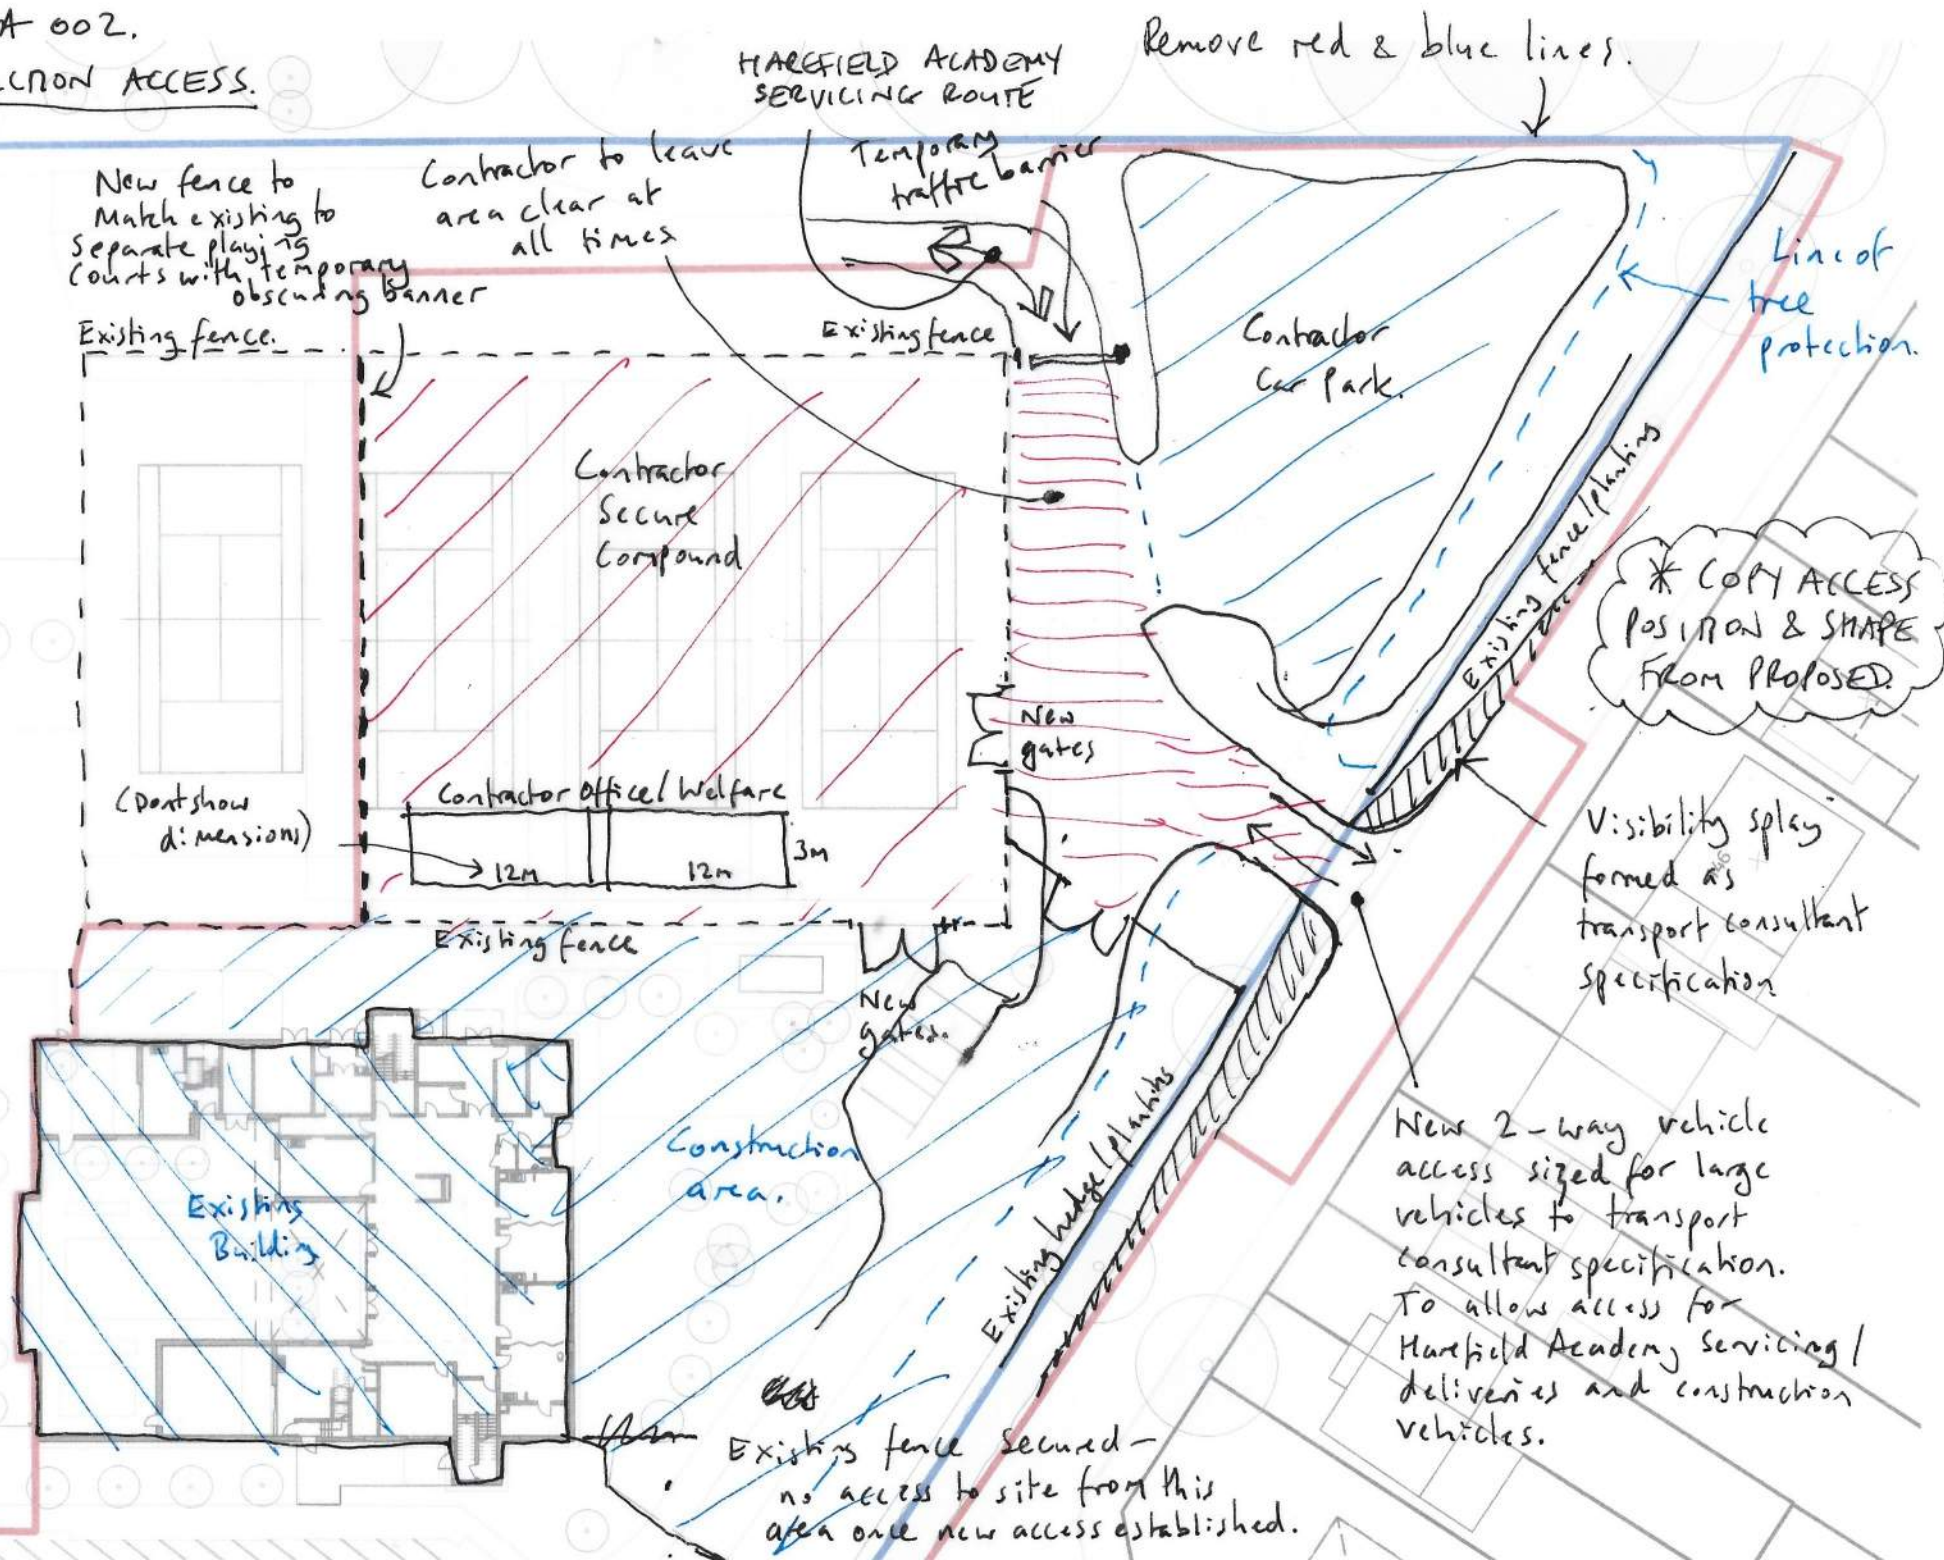 A 002.
CTION ACCESS.
HAREFIELD ACADEMY
SERVICING ROUTE
Remove red & blue lines.
New fence to
Match existing to
Separate playing
Courts with temporary
obscuring banner
Contractor to leave
area clear at
all times
Temporary
traffic barrier
Line of
tree
protection.
Existing fence.
Existing fence
Contractor
Car Park.
Contractor
Secure
Compound
Existing fence/planting
* COPY ACCESS
POSITION & SHAPE
FROM PROPOSED.
New
gates
(Dont show
dimensions)
Contractor Office/Welfare
12m
12m
3m
Visibility splay
formed as
transport consultant
specification
46
Existing fence
New
gates.
Construction
area.
Existing
Building
Existing hedge/planting
New 2-way vehicle
access sized for large
vehicles to transport
consultant specification.
To allow access for
Harefield Academy Servicing/
deliveries and construction
vehicles.
Existing fence Secured -
no access to site from this
area once new access established.